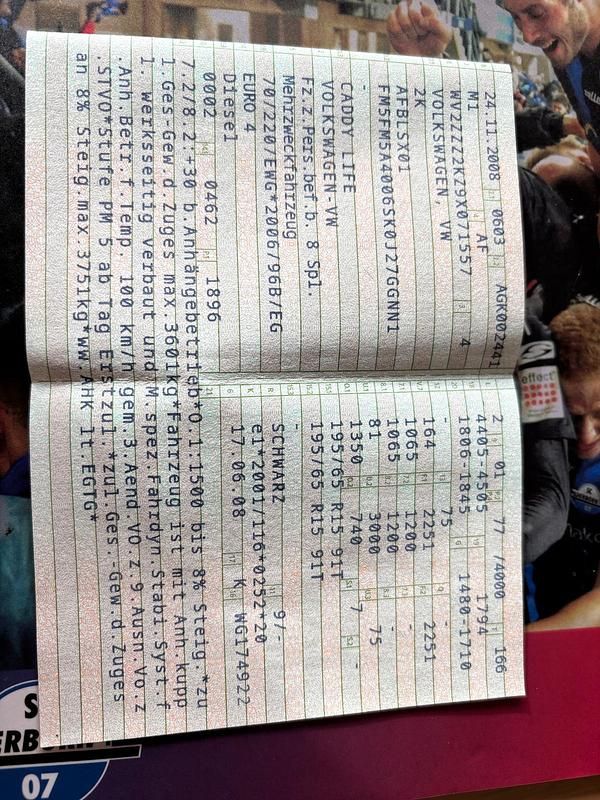 24.11.2008 0603 AGK002441
M1 AF
WV2ZZZ2KZ9X071557 4
VOLKSWAGEN, VW
2K
AFBLSX01
FM5FM5A4006SK0J27GGNN1
-
CADDY LIFE
VOLKSWAGEN-VW
Fz.z.Pers.bef.b. 8 Spl.
Mehrzweckfahrzeug
70/220/EWG*2006/96B/EG
EURO 4
Diesel
0002 0462 1896
2 01 77 /4000 166
4405-4505 1794
1806-1845 1480-1710
- 75 -
164 2251 2251
1065 1200 -
1065 1200 -
81 3000 75
1350 740 7 -
195/65 R15 91T
195/65 R15 91T
-
SCHWARZ 9/-
e1*2001/116*0252*20
17.06.08 K WG174922
7.2/8.2:+30 b.Anhängebetrieb*O.1:1500 bis 8% Steig.*zu
l.Ges-Gew.d.Zuges max.3601kg*Fahrzeug ist mit Anh.kupp
l. werksseitig verbaut und M.spez.Fahrdyn.Stabi.Syst.f
.Anh.Betr.f.Temp. 100 km/h gem.3.Aend.Vo.z.9.Ausn.Vo.z
.StVO*Stufe PM 5 ab Tag Erstzul.*zul.Ges.-Gew.d.Zuges
an 8% Steig.max.3751kg*www.AHK lt.EGTG*
effect
07